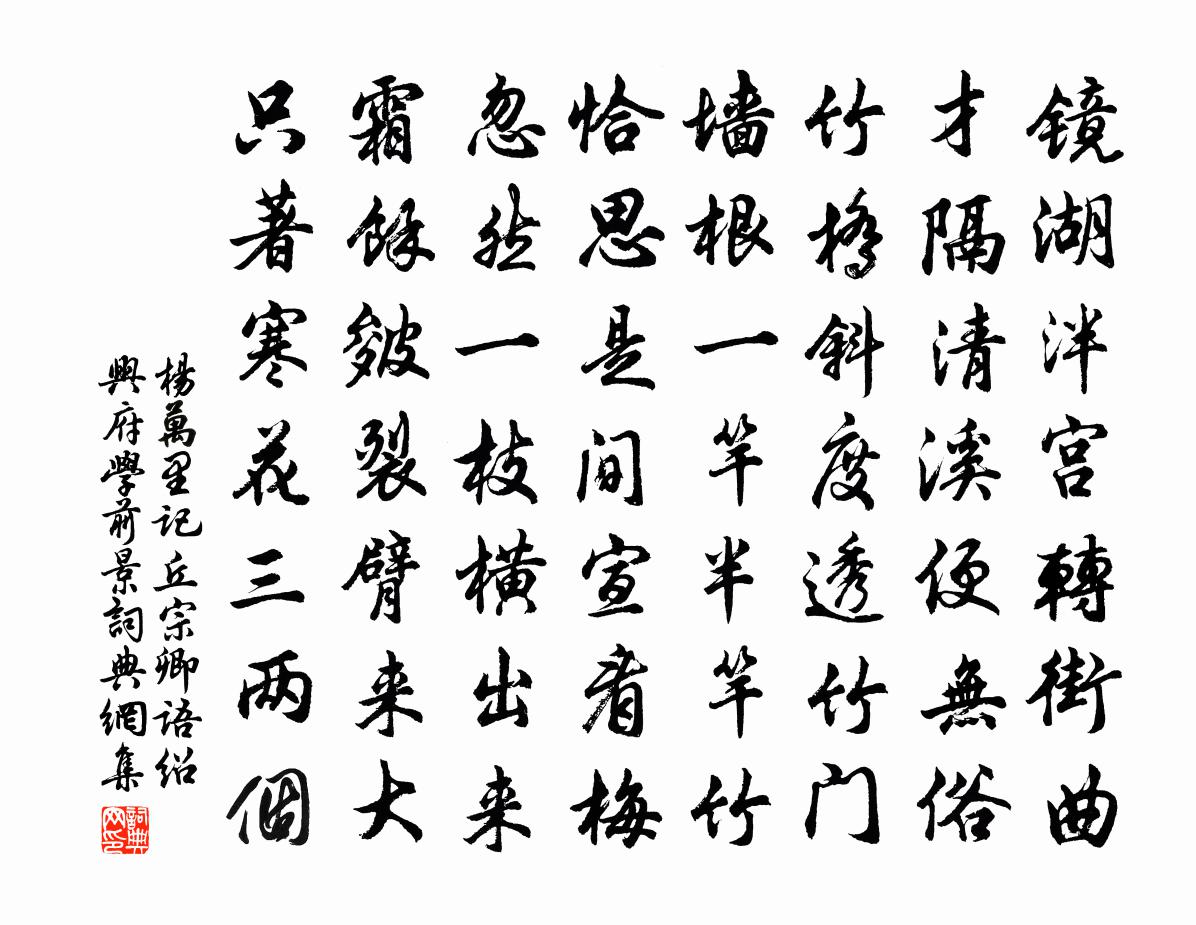 镜湖泮宫轉街曲
才隔清溪便無俗
竹橋斜度透竹门
墙根一竿半竿竹
恰思是间宣看梅
忽然一枝横出来
霜餘皴裂臂来大
只著寒花三两個
楊萬里记丘宗卿语绍
興府學前景詞典網集
詞典
网印